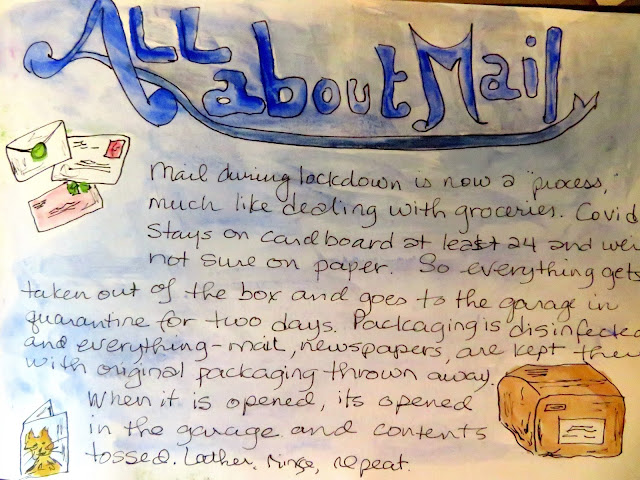 All
about Mail
Mail during lockdown is now a "process,"
much like dealing with groceries. Covid
stays on cardboard at least 24 and we're
not sure on paper. So everything gets
taken out of the box and goes to the garage in
quarantine for two days. Packaging is disinfected
and everything - mail, newspapers, are kept there
with original packaging thrown away.
When it is opened, its opened
in the garage and contents
tossed. Lather, rinse, repeat.